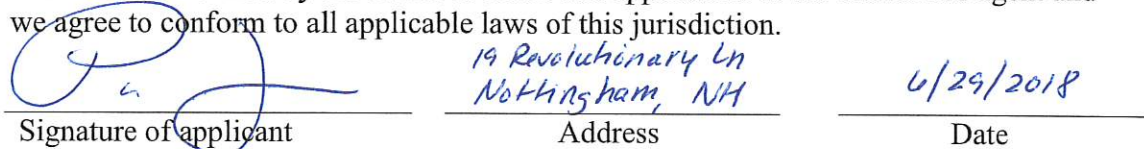 we agree to conform to all applicable laws of this jurisdiction.
19 Revolutionary Ln
Nottingham, NH
6/29/2018
Signature of applicant Address Date